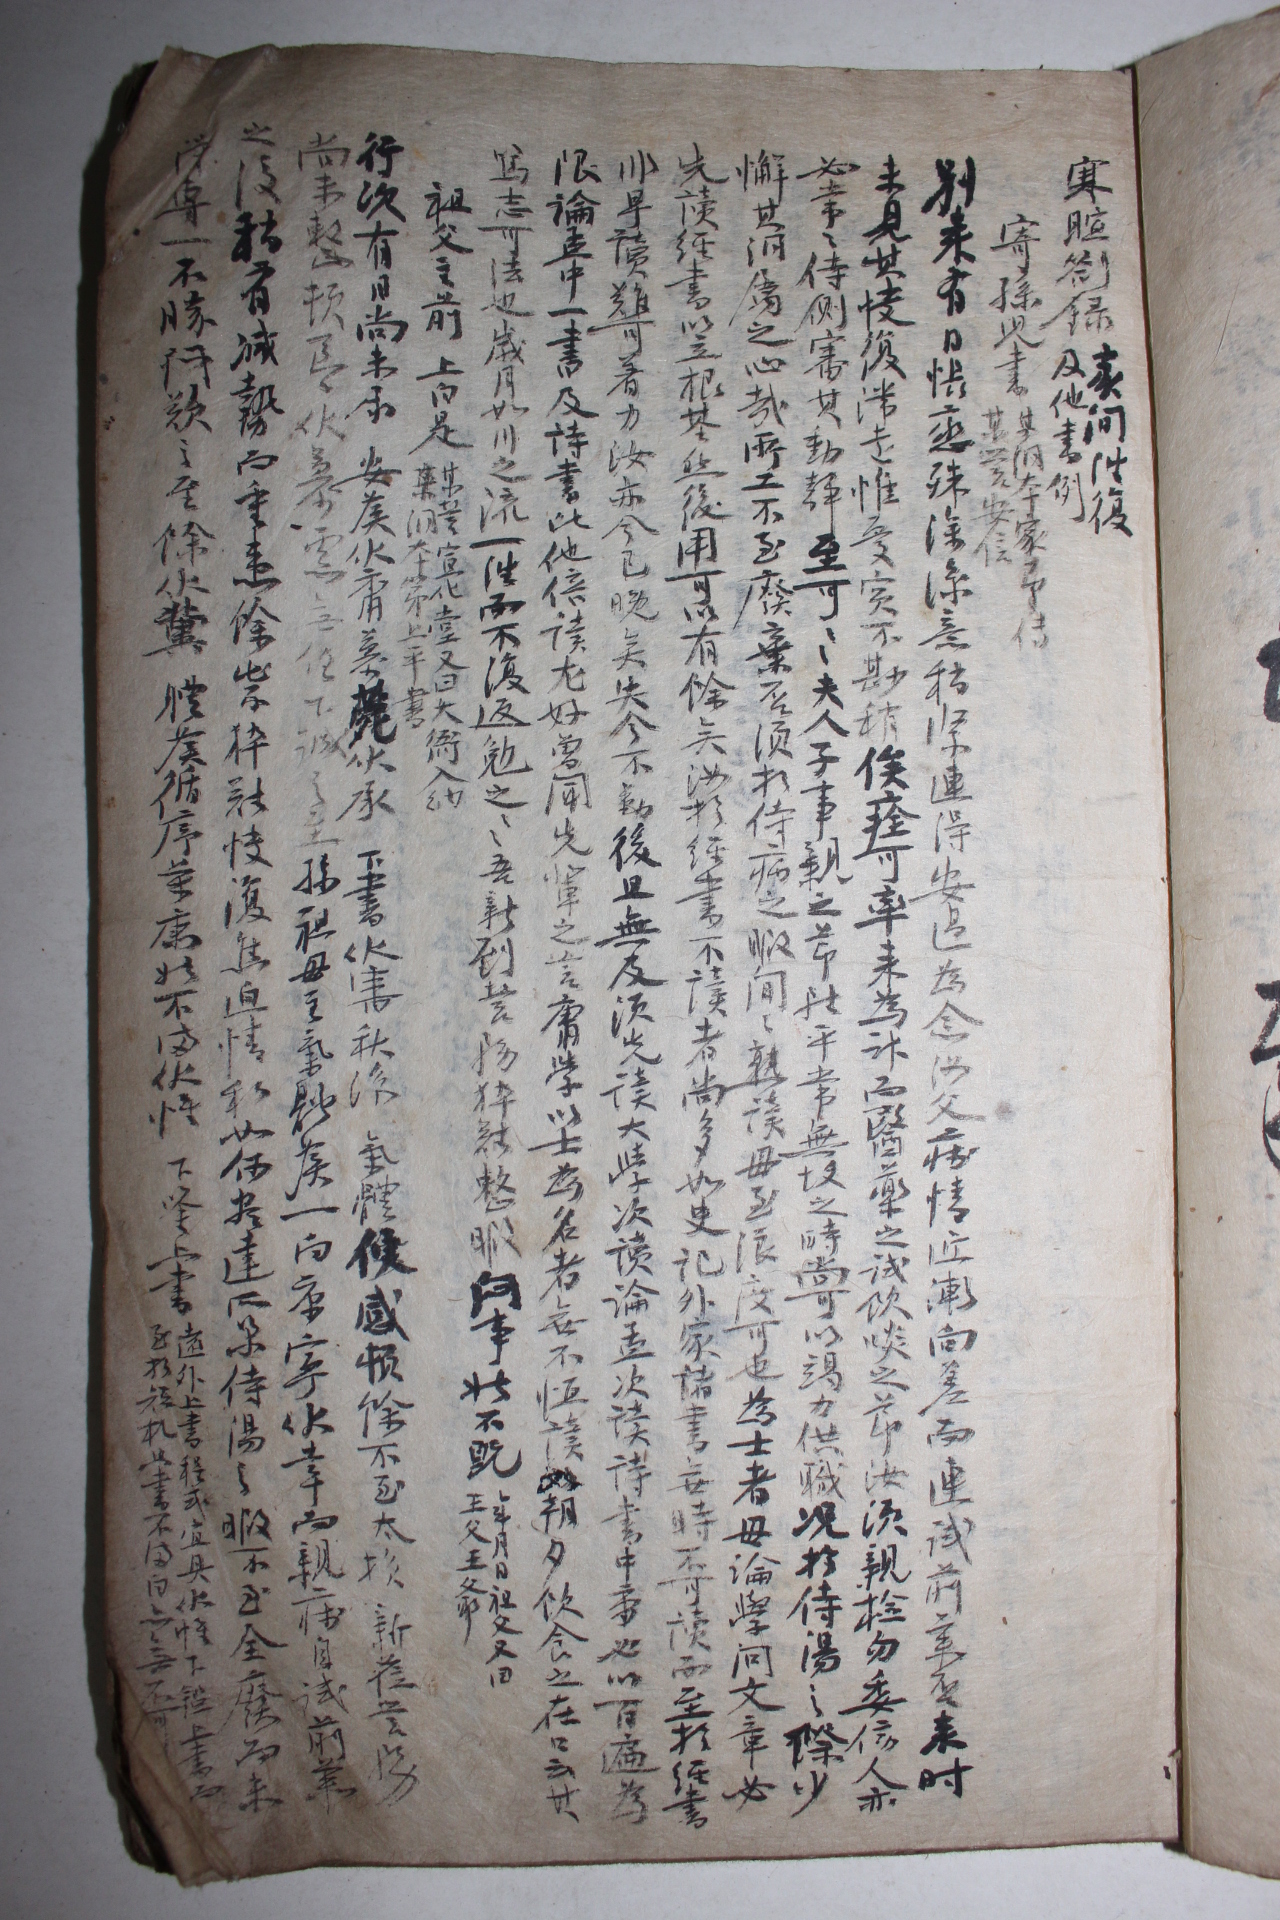 寒暄劄録 表间往復
及他書例
寄孫兒書 某洞本家即傳
某營安信
別來有日悵戀殊深深意稍深連得安過為念汝父病情近漸向差而連試前藥否來时
未見其快復滯慮惟憂實不勘稍俟痊可率来為計而醫藥之試飲啖之节汝須親檢勿委傍人亦
必常〻侍側審其動靜至可〻夫人子事親之节雖平常無故之時尚可以竭力供職况於侍湯之際少
懈其洞屬之心哉所工不至廢棄否須於侍病之暇間〻熟讀毋至浪度可也為士者毋論學问文章必
先讀經書以立根基然後用可以有餘矣汝於經書不讀者尚多如史记外家諸書無時不可讀而至於經書
非早讀難可着力汝亦今已晚矣失今不勤後且無及須先讀大學次讀論孟次讀诗書中常必以百遍為
限論孟中一書及诗書此他倍讀尤好曾聞先輩之言庸學以士為名者無不恒讀如朝夕飲食之在口云其
篤志可法也歲月如川之流一往而不復返勉之〻吾新到营務猝難整暇何事姑不既 年月日祖父又曰
王父王爺
祖父主前 上白是 某营宣化堂又曰大衙入納
某洞本第上平書
行次有日尚未承 安候伏庸慕 伏承 下書伏審秋深 氣體候感損餘不至太損 新莅营務
尚未整頓 伏慕 無任下诚之至孫祖母主氣體候一向康寧伏幸而親病自試前藥
之後稍有减勢而重患餘祟猝難快復焦迫情私如何盡達所業侍湯之暇不至全廢而未
專一不勝 歎之至餘伏冀 體候循序萬康姑不備伏惟 下鑒上書 遠外上書程式宜具伏惟下鑒上書而
至於短札上書不備白